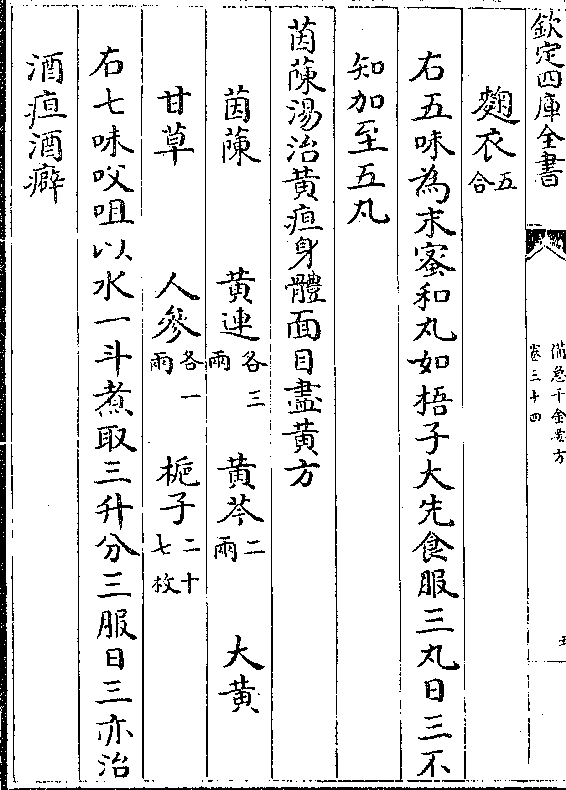 欽定四庫全書
備急千金要方
卷三十四
五
麴衣五合
右五味為末蜜和丸如梧子大先食服三丸日三不
知加至五丸
茵蔯湯治黄疸身體面目盡黄方
茵蔯 黄連各三兩 黄芩二兩 大黄
甘草 人參各一兩 梔子二十七枚
右七味㕮咀以水一斗煮取三升分三服日三亦治
酒疸酒癖